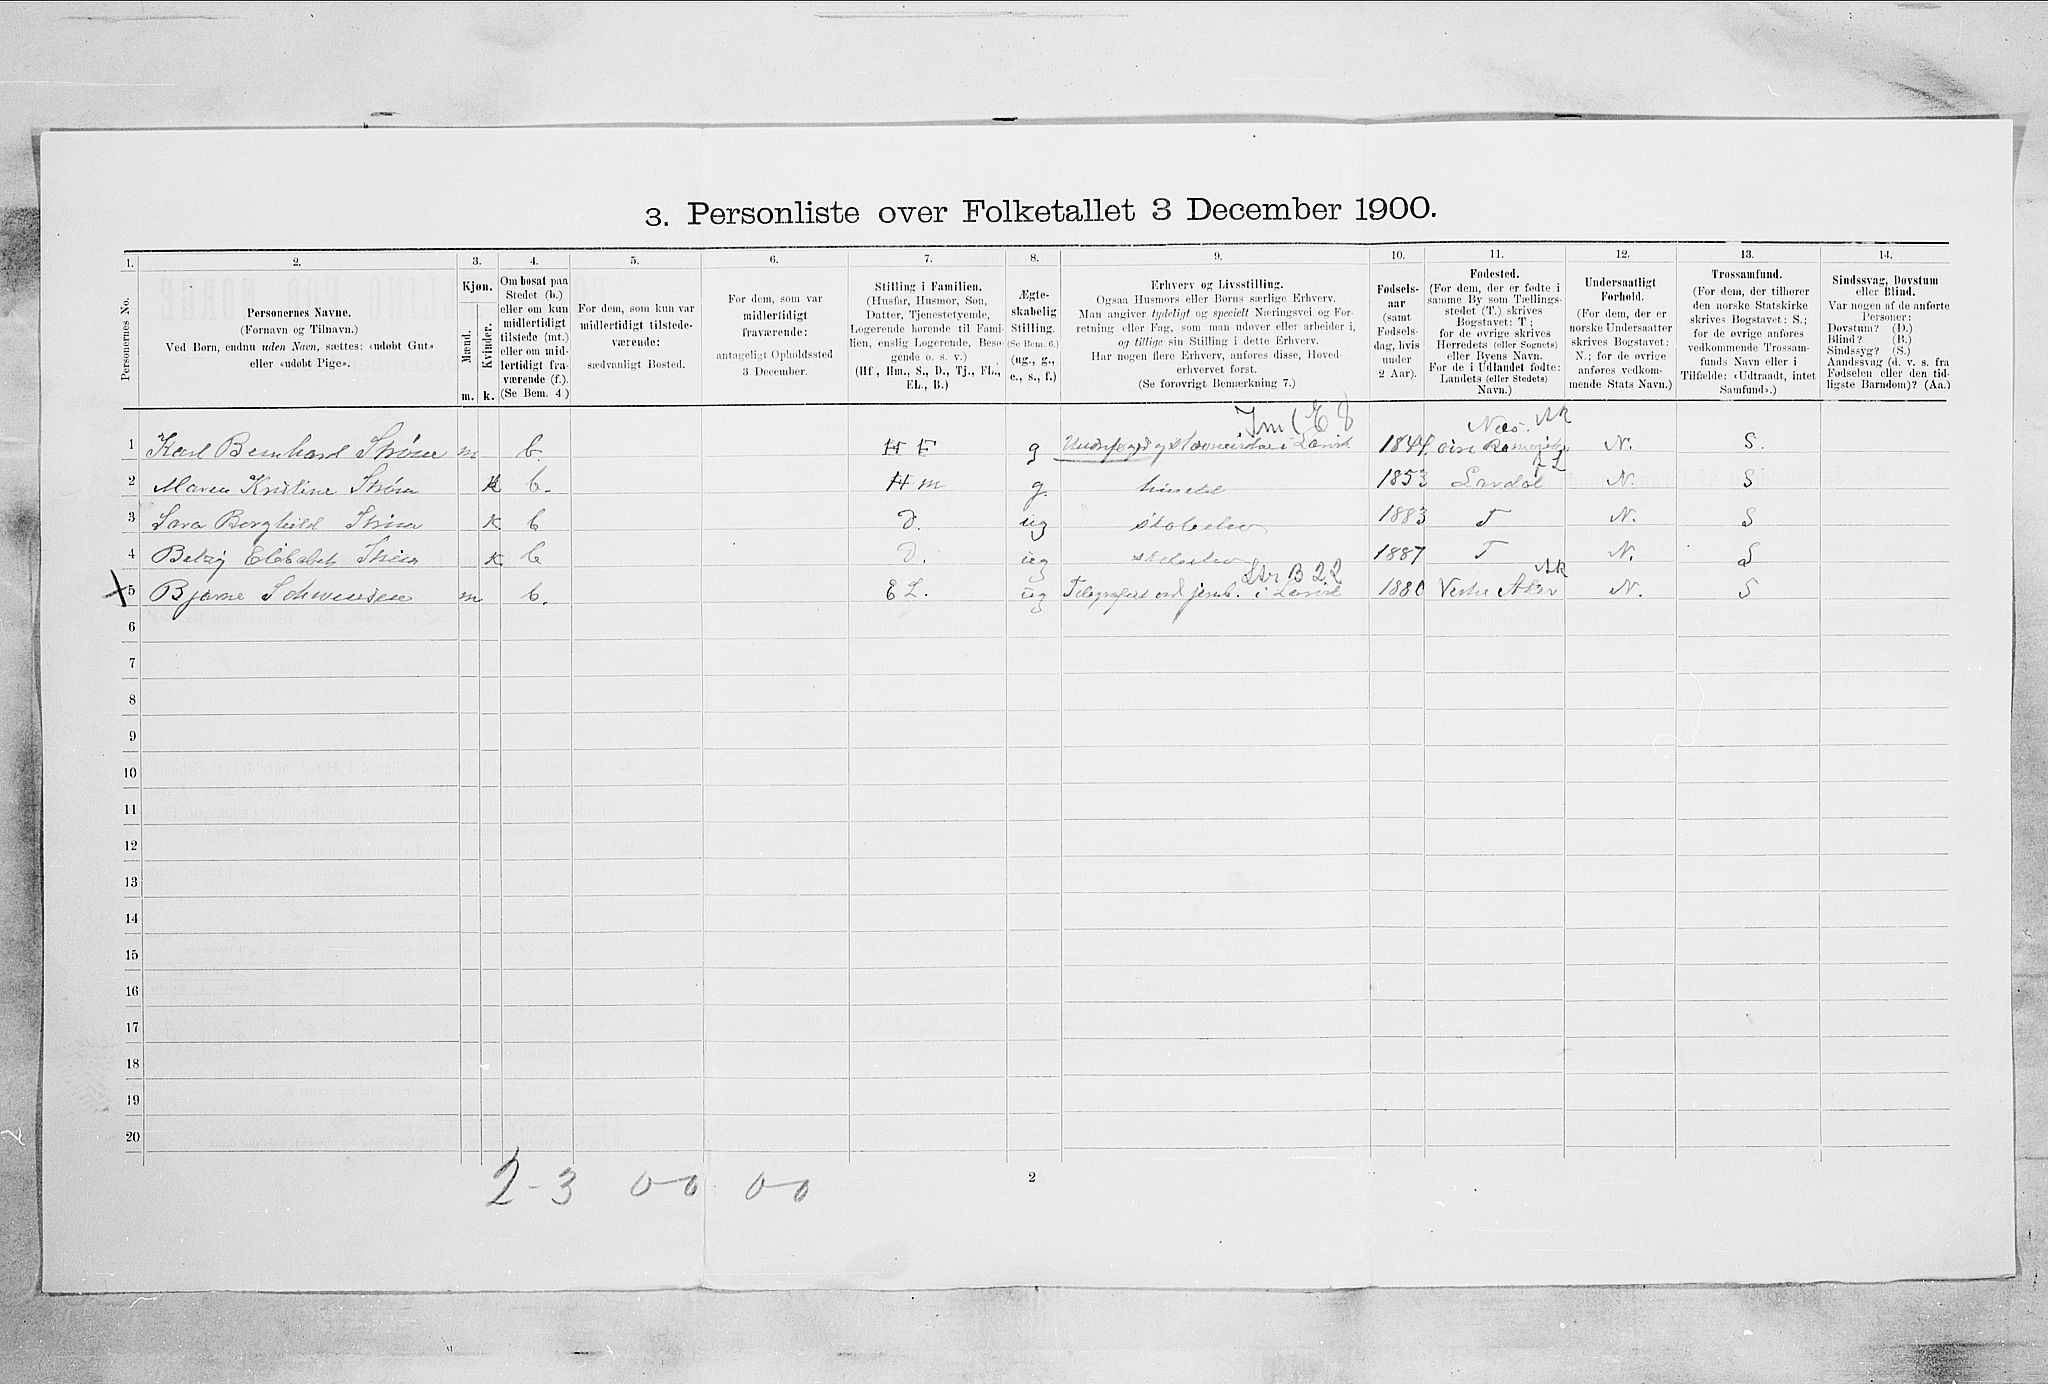 3. Personliste over Folketallet 3 December 1900.
1. 2. 3. 4. 5. 6. 7. 8. 9. 10. 11. 12. 13. 14.
Personernes No.
Personernes Navne.
(Fornavn og Tilnavn.)
Ved Børn, endnu uden Navn, sættes: «udøbt Gut»
eller «udøbt Pige».
Kjøn.
Mænd.
Kvinder.
m. k.
Om bosat paa
Stedet (b.)
eller om kun
midlertidigt
tilstede (mt.)
eller om mid-
lertidigt fra-
værende (f.).
(Se Bem. 4.)
For dem, som kun var
midlertidigt tilstede-
værende:
sædvanligt Bosted.
For dem, som var
midlertidigt
fraværende:
antageligt Opholdssted
3 December.
Stilling i Familien.
(Husfar, Husmor, Søn,
Datter, Tjenestetyende,
Logerende hørende til Fami-
lien, enslig Logerende, Besø-
gende o. s. v.)
(Hf., Hm., S., D., Tj., FL.,
EL., B.)
Ægte-
skabelig
Stilling.
(Se Bem. 6.)
(ug., g.,
e., s., f.)
Erhverv og Livsstilling.
Ogsaa Husmors eller Børns særlige Erhverv.
Man angiver tydeligt og specielt Næringsvei og For-
retning eller Fag, som man udover eller arbeider i,
og tillige sin Stilling i dette Erhverv.
Har nogen flere Erhverv, anføres disse, Hoved-
erhvervet først.
(Se forøvrigt Bemærkning 7.)
Fødsels-
aar
(samt
Fødsels-
dag, hvis
under
2 Aar).
Fødested.
(For dem, der er fødte i
samme By som Tællings-
stedet (T.) skrives
Bogstavet: T;
for de øvrige skrives
Herredets (eller Sognets)
eller Byens Navn.
For de i Udlandet fødte:
Landets (eller Stedets)
Navn.)
Undersaatligt
Forhold.
(For dem, der er
norske Undersaatter
skrives Bogstavet:
N.; for de øvrige
anføres vedkom-
mende Stats Navn.)
Trossamfund.
(For dem, der tilhører
den norske Statskirke
skrives Bogstavet: S.;
for de øvrige anføres
vedkommende Trossam-
funds Navn eller i
Tilfælde: «Udtraadt, intet
Samfund».)
Sindssvag, Døvstum
eller Blind.
Var nogen af de anførte
Personer:
Døvstum? (D.)
Blind? (B.)
Sindssyg? (S.)
Aandssvag (d. v. s. fra
Fødselen eller den tid-
ligste Barndom)? (Aa.)
Næs. AK
1 Karl Bernhard Strøm m b. H F g i Larvik 1844 N. S.
2 Maren Kristine Strøm k b. H m g. husstel 1853 Lardal N. S
3 Sara Borghild Strøm k b D. ug skoleelev 1883 T N. S
4 Betzy Elisabeth Strøm k b D. ug skoleelev 1887 T N. S
B 22 AK
X 5 Bjarne Schwensen m b. E L. ug Telegrafist ved jernb. i Larvik 1880 Vestre Aker N. S
6
7
8
9
10
11
12
13
14
15
16
17
18
19
20
2-3 0-0 0-0
2